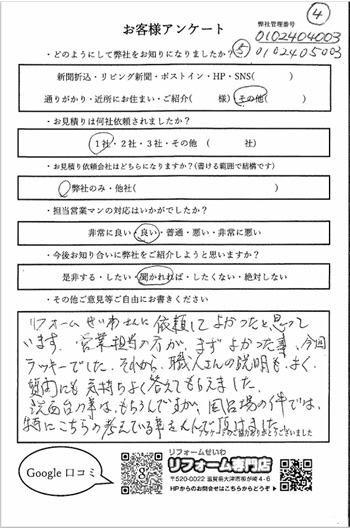 ④
お客様アンケート
弊社管理番号
0102404003
⑤ 0102405003
・どのようにして弊社をお知りになりましたか?
新聞折込・リビング新聞・ポストイン・HP・SNS( )
通りがかり・近所にお住まい・ご紹介( 様)その他( )
・お見積りは何社依頼されましたか?
1社・2社・3社・その他 ( 社)
・お見積り依頼会社はどちらになりますか?(書ける範囲で結構です)
弊社のみ・他社( )
・担当営業マンの対応はいかがでしたか?
非常に良い・良い・普通・悪い・非常に悪い
・今後お知り合いに弊社をご紹介しようと思いますか?
是非する・したい・聞かれれば・したくない・絶対しない
・その他ご意見等ご自由にお書きください
リフォームせいわさんに依頼してよかったと思って
います。営業担当の方が、まずよかった事、今回
ラッキーでした。それから、職人さんの説明も、よく、
質問にも気持ちよく答えてもらえました。
洗面台の事は、もちろんですが、風呂場の件では、
特にこちらの考えている事をんで頂けました。
アンケートのご協力ありがとうございました
Google 口コミ
リフォームせいわ
リフォーム専門店
〒520-0022 滋賀県大津市柳が崎4-6
HPからのお問合せはこちらからどうぞ